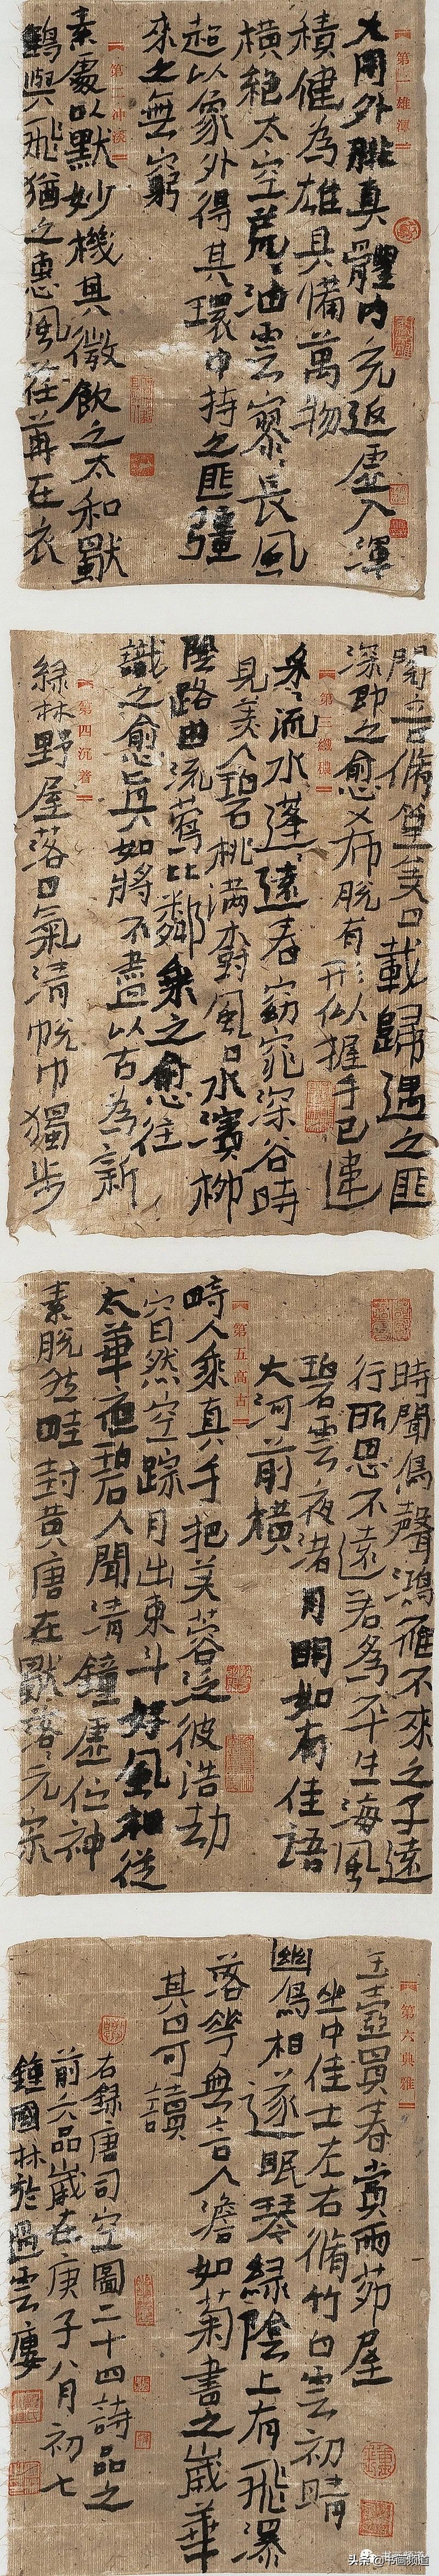 第一雄渾
大用外腓真體内充返虛入渾
積健為雄具備萬物
橫絶太空荒〻油雲寥〻長風
超以象外得其環中持之匪彊
來之無窮
第二沖淡
素處以默妙機其微飲之太和獨
鶴與飛猶之惠風荏苒在衣
閱音脩篁美曰載歸遇之匪
深即之愈希脫有形似握手已違
第三纖穠
采〻流水蓬〻遠春窈窕深谷時
見美人碧桃滿樹風日水濱柳
陰路曲流鶯比鄰乘之愈往
識之愈真如將不盡以古為新
第四沉著
綠林野屋落日氣清脫巾獨步
時聞鳥聲鴻雁不來之子遠
行所思不遠若為平生海風
碧雲夜渚月明如有佳語
大河前橫
第五高古
畸人乘真手把芙蓉泛彼浩劫
窅然空蹤月出東斗好風相從
太華夜碧人聞清鐘虛佇神
素脫然畦封黃唐在獨落〻元宗
第六典雅
玉壺買春賞雨茆屋
坐中佳士左右脩竹白雲初晴
幽鳥相逐眠琴綠陰上有飛瀑
落花無言人澹如菊書之歲華
其曰可讀
右錄唐司空圖二十四詩品之
前六品歲在庚子八月初七
鍾國林於過雲廔
头条 @书画频道